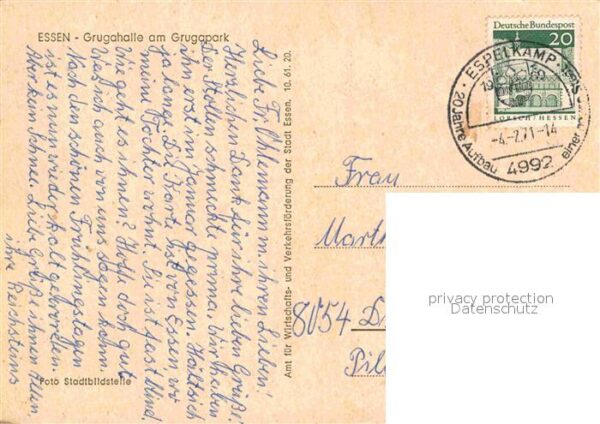 ESSEN - Grugahalle am Grugapark
Liebe Fr. Uhlemann u. ihren Lieben!
Herzlichen Dank für ihre lieben Grüße.
Der Stollen schmeckte prima. Wir haben
ihn erst im Januar gegessen. Hält sich
ja lang. Die Karte ist von Essen wo
meine Tochter wohnt. Sie ist fast blind.
Wie geht es ihnen? Hoffe doch gut
was ich auch von uns sagen kann.
Nach den schönen Frühlingstagen
ist es nun wieder kalt geworden.
Aber kein Schnee. Liebe Grüße ihnen allen,
ihre
Foto Stadtbildstelle
Amt für Wirtschafts- und Verkehrsförderung der Stadt Essen. 10. 61. 20.
Deutsche Bundespost
20
LORSCH/HESSEN
ESPELKAMP
20 Jahre Aufbau einer
-4.-2.71-14
4992
Frau
Marth
8054 D
Pil
privacy protection
Datenschutz